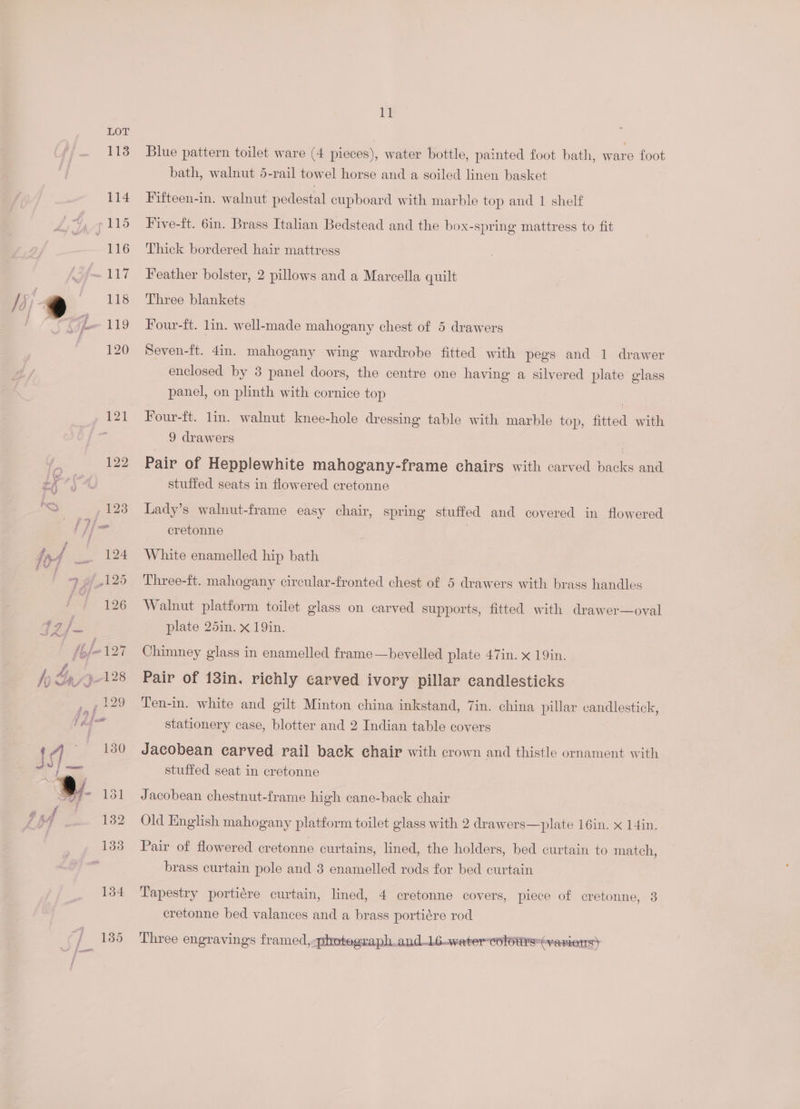 11
LOT
113 Blue pattern toilet ware (4 pieces), water bottle, painted foot bath, ware foot
bath, walnut 5-rail towel horse and a soiled linen basket
114 Fifteen-in. walnut pedestal cupboard with marble top and 1 shelf
115 Five-ft. 6in. Brass Italian Bedstead and the box-spring mattress to fit
116 Thick bordered hair mattress
117 Feather bolster, 2 pillows and a Marcella quilt
118 Three blankets
119 Four-ft. 1in. well-made mahogany chest of 5 drawers
120 Seven-ft. 4in. mahogany wing wardrobe fitted with pegs and 1 drawer
enclosed by 3 panel doors, the centre one having a silvered plate glass
panel, on plinth with cornice top
121 Four-ft. 1in. walnut knee-hole dressing table with marble top, fitted with
9 drawers
122 Pair of Hepplewhite mahogany-frame chairs with carved backs and
stuffed seats in flowered cretonne
123 Lady's walnut-frame easy chair, spring stuffed and covered in flowered
cretonne
124 White enamelled hip bath
125 Three-ft. mahogany circular-fronted chest of 5 drawers with brass handles
126 Walnut platform toilet glass on carved supports, fitted with drawer—oval
plate 25in. × 19in.
127 Chimney glass in enamelled frame—bevelled plate 47in. × 19in.
128 Pair of 13in. richly carved ivory pillar candlesticks
129 Ten-in. white and gilt Minton china inkstand, 7in. china pillar candlestick,
stationery case, blotter and 2 Indian table covers
130 Jacobean carved rail back chair with crown and thistle ornament with
stuffed seat in cretonne
131 Jacobean chestnut-frame high cane-back chair
132 Old English mahogany platform toilet glass with 2 drawers—plate 16in. × 14in.
133 Pair of flowered cretonne curtains, lined, the holders, bed curtain to match,
brass curtain pole and 3 enamelled rods for bed curtain
134 Tapestry portière curtain, lined, 4 cretonne covers, piece of cretonne, 3
cretonne bed valances and a brass portière rod
135 Three engravings framed, photograph and 16 water-colours (various)